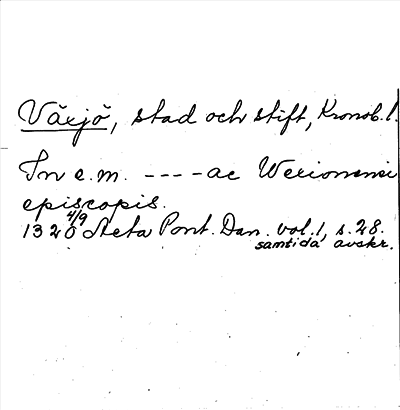 Växjö, stad och stift, Kronob. l.
In e.m. ---- ac Wexionensi
episcopis.
1320 4/9 Acta Pont. Dan. vol. 1, s. 28.
samtida avskr.